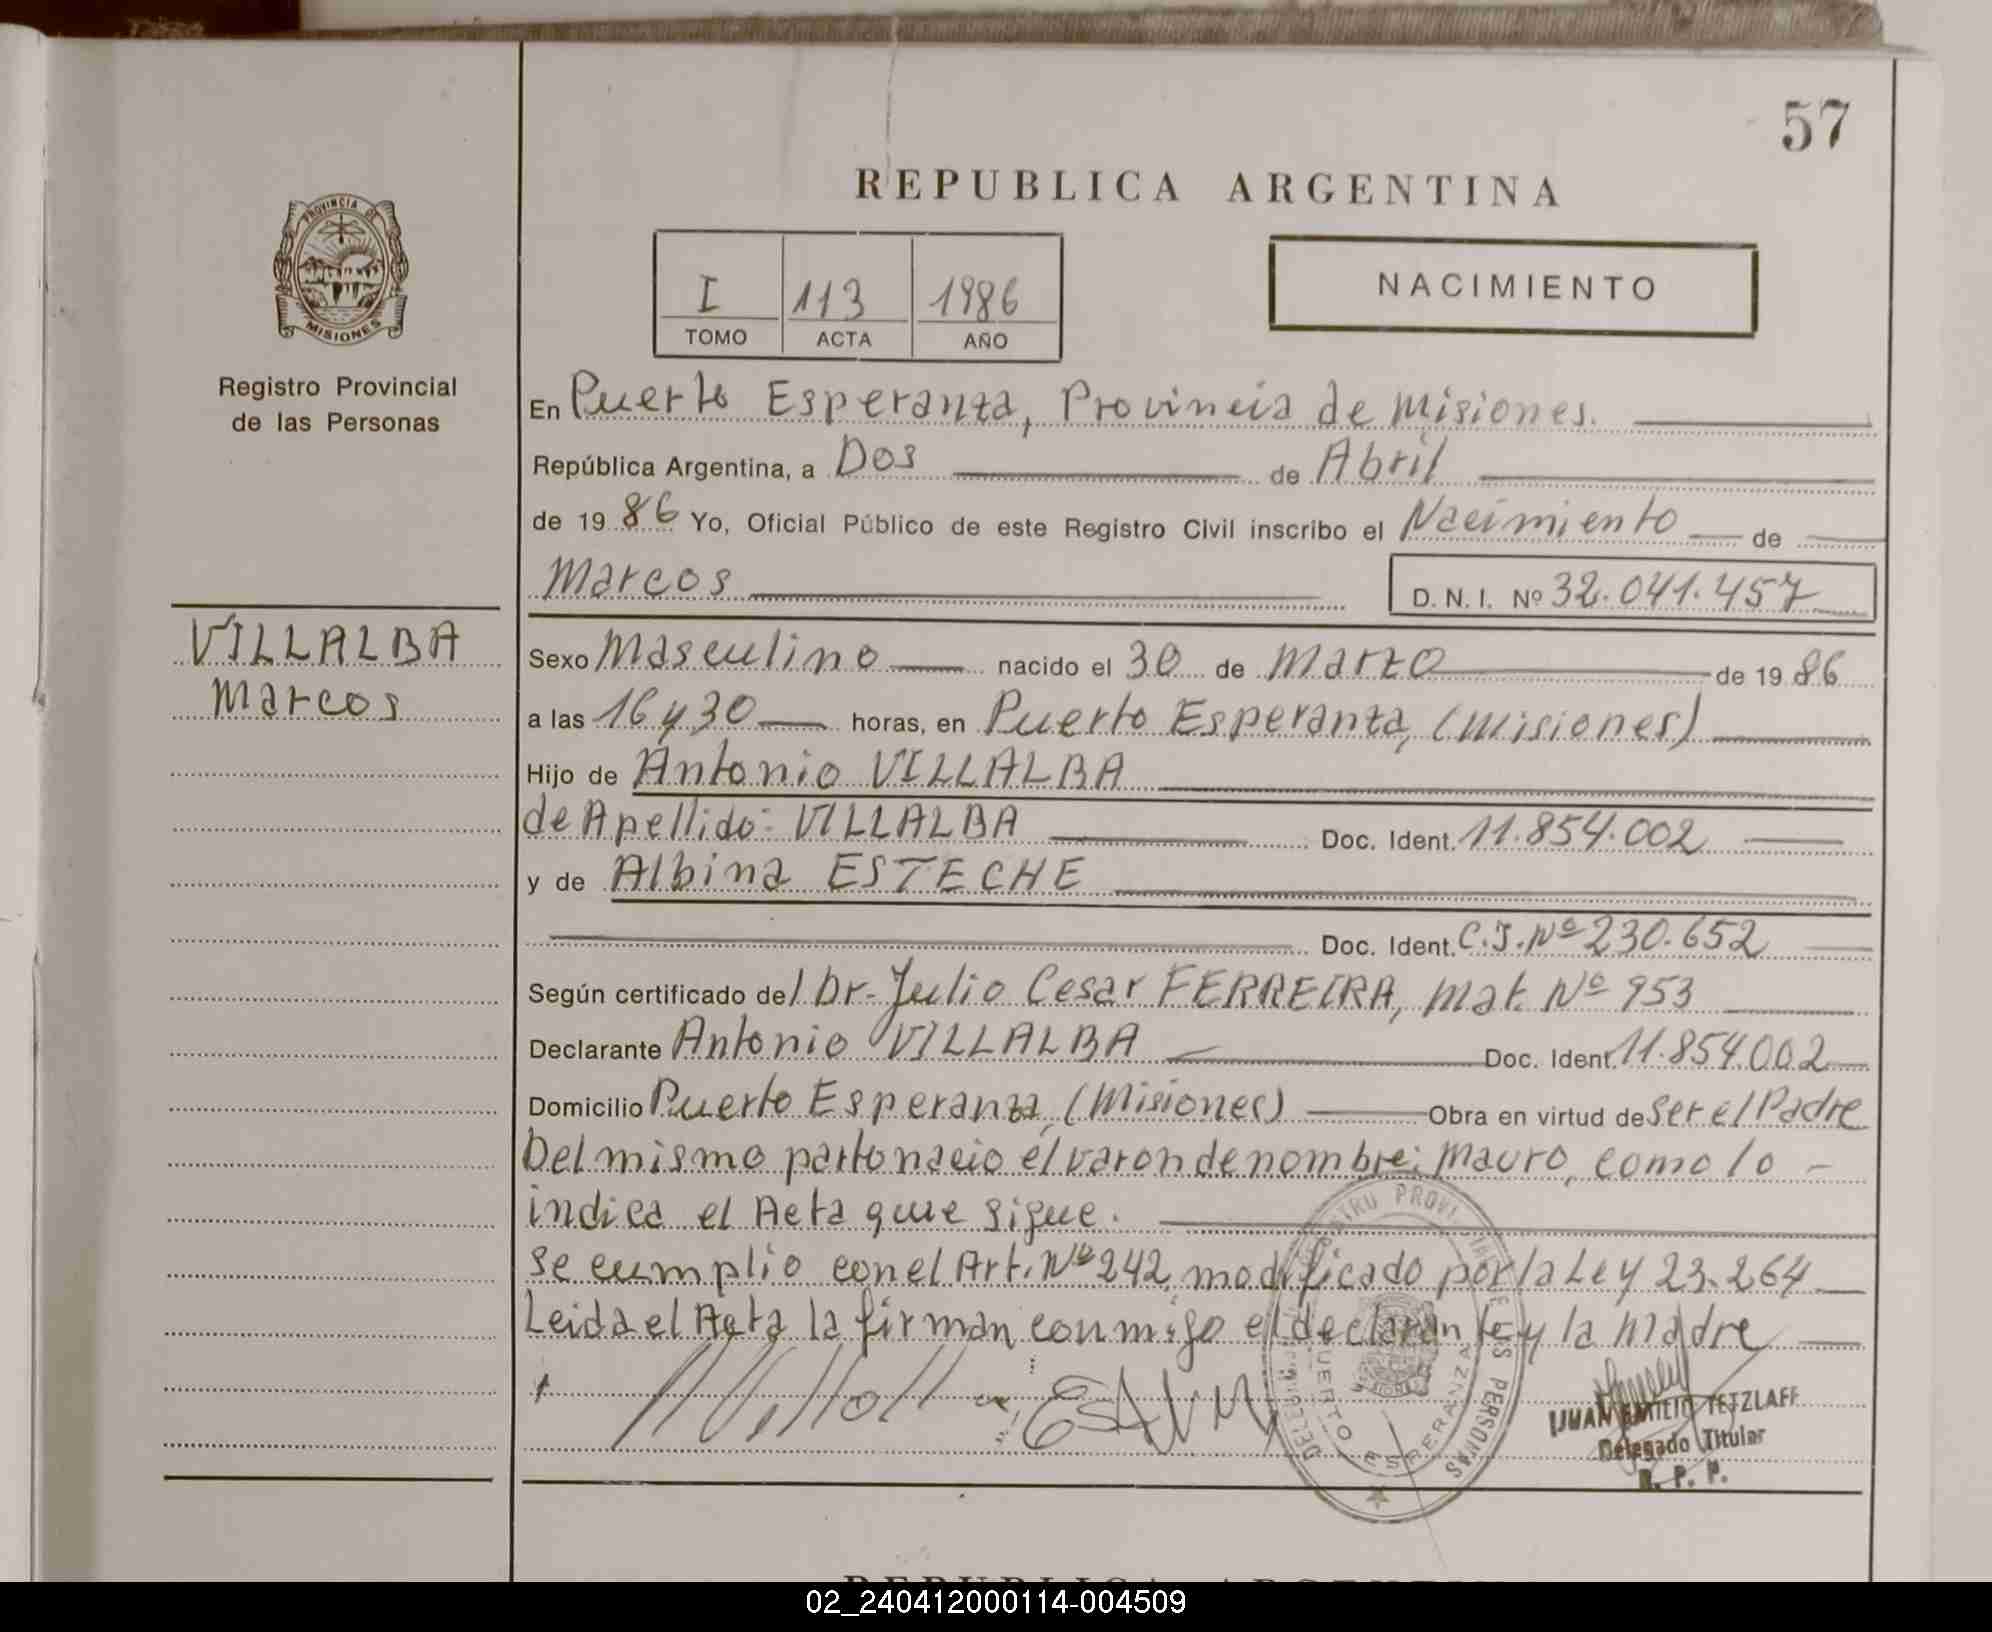 57
REPUBLICA ARGENTINA
PROVINCIA DE
MISIONES
I 113 1986
TOMO ACTA AÑO
NACIMIENTO
Registro Provincial
de las Personas
En Puerto Esperanza, Provincia de Misiones.
República Argentina, a Dos de Abril
de 1986 Yo, Oficial Público de este Registro Civil inscribo el Nacimiento de
Marcos D. N. I. Nº 32.041.457
VILLALBA
Marcos
Sexo Masculino nacido el 30 de Marzo de 1986
a las 16 y 30 horas, en Puerto Esperanza, (Misiones)
Hijo de Antonio VILLALBA
de Apellido: VILLALBA Doc. Ident. 11.854.002
y de Albina ESTECHE
Doc. Ident. C.I. Nº 230.652
Según certificado del Dr. Julio Cesar FERREIRA, Mat. Nº 953
Declarante Antonio VILLALBA Doc. Ident. 11.854.002
Domicilio Puerto Esperanza, (Misiones) Obra en virtud de Ser el Padre
Del mismo parto nacio el varon de nombre: Mauro, como lo
indica el Acta que sigue.
Se cumplio con el Art. Nº 242, modificado por la Ley 23.264
Leida el Acta la firman conmigo el declarante y la Madre
JUAN EMILIO TETZLAFF
Delegado Titular
R. P. P.
PUERTO ESPERANZA
02_240412000114-004509